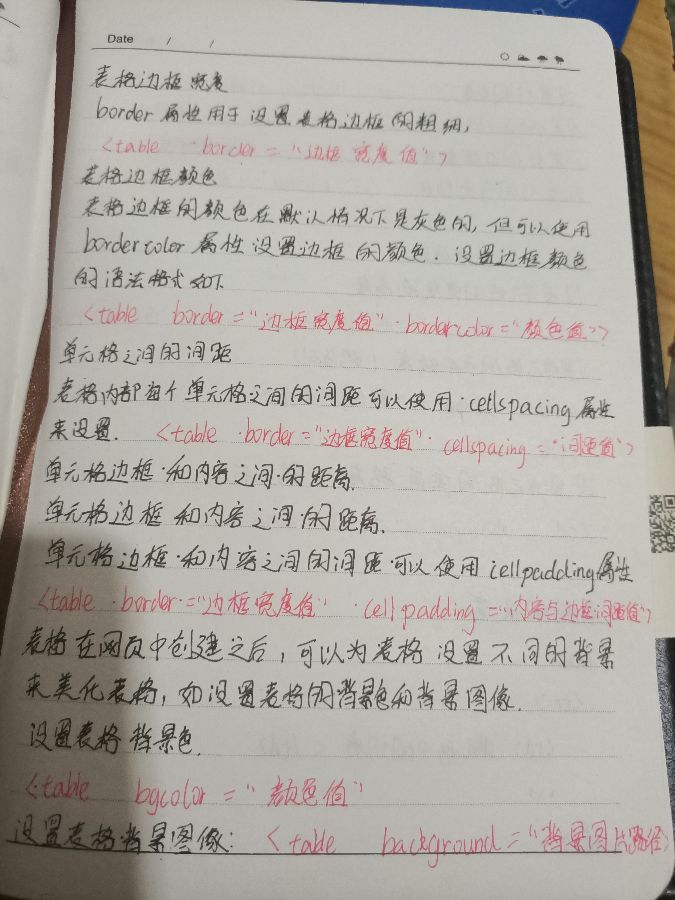 Date / /
表格边框宽度
border 属性用于设置表格边框的粗细,
<table border="边框宽度值">
表格边框颜色
表格边框的颜色在默认情况下是灰色的,但可以使用
bordercolor 属性设置边框的颜色. 设置边框颜色
的语法格式如下
<table border="边框宽度值" bordercolor="颜色值">
单元格之间的间距
表格内部每个单元格之间的间距可以使用 cellspacing 属性
来设置. <table border="边框宽度值" cellspacing="间距值">
单元格边框和内容之间的距离.
单元格边框和内容之间的距离.
单元格边框和内容之间的间距可以使用 cellpadding 属性
<table border="边框宽度值" cellpadding="内容与边框间距值">
表格在网页中创建之后,可以为表格设置不同的背景
来美化表格,如设置表格的背景色和背景图像.
设置表格背景色.
<table bgcolor="颜色值"
设置表格背景图像: <table background="背景图片路径